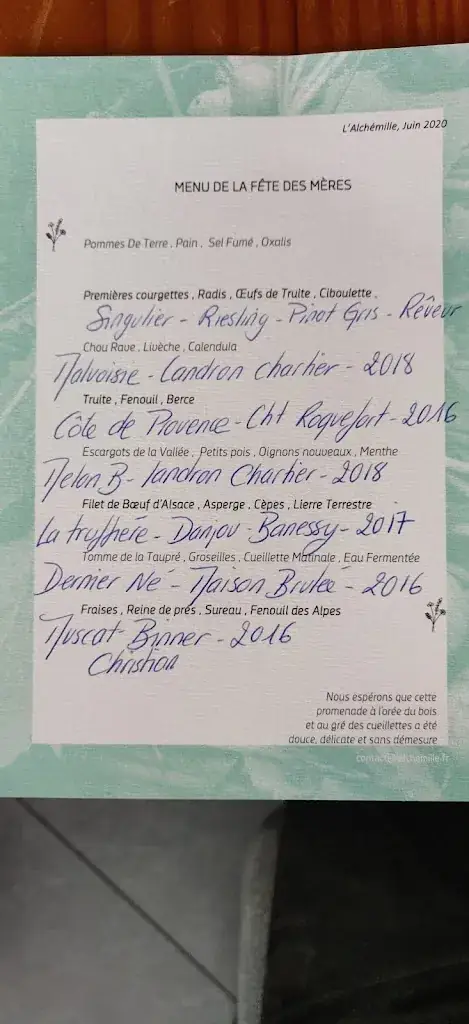 L'Alchémille, Juin 2020
MENU DE LA FÊTE DES MÈRES
Pommes De Terre , Pain , Sel Fumé , Oxalis
Premières courgettes , Radis , Œufs de Truite , Ciboulette ,
Singulier - Riesling - Pinot Gris - Rêveur
Chou Rave , Livèche , Calendula
Malvoisie - Landron Chartier - 2018
Truite , Fenouil , Berce
Côte de Provence - Cht Roquefort - 2016
Escargots de la Vallée , Petits pois , Oignons nouveaux , Menthe
Melon B - Landron Chartier - 2018
Filet de Bœuf d'Alsace , Asperge , Cèpes , Lierre Terrestre
La truffière - Danjou - Banessy - 2017
Tomme de la Taupré , Groseilles , Cueillette Matinale , Eau Fermentée
Dernier Né - Maison Brulée - 2016
Fraises , Reine de prés , Sureau , Fenouil des Alpes
Muscat - Binner - 2016
Christian
Nous espérons que cette
promenade à l'orée du bois
et au gré des cueillettes a été
douce, délicate et sans démesure